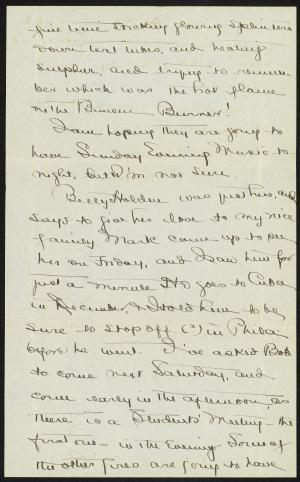 fine time sticking glowing splinters
down test tubes, and heating
sulphur, and trying to remem-
ber which was the hot flame
on the Bunsen Burner!
I am hoping they are going to
have Sunday Evening Music to-
night, but I'm not sure.
Betty Holden was just here, and
says to give her love to my nice
family. Mark came up to see
her on Friday, and I saw him for
just a minute. He goes to Cuba
in December, & I told him to be
sure to stop off (?) in Phila
before he went. I've asked Bob
to come next Saturday, and
come early in the afternoon, as
there is a Students' Meeting - the
first one - in the Evening. Some of
the other girls are going to have